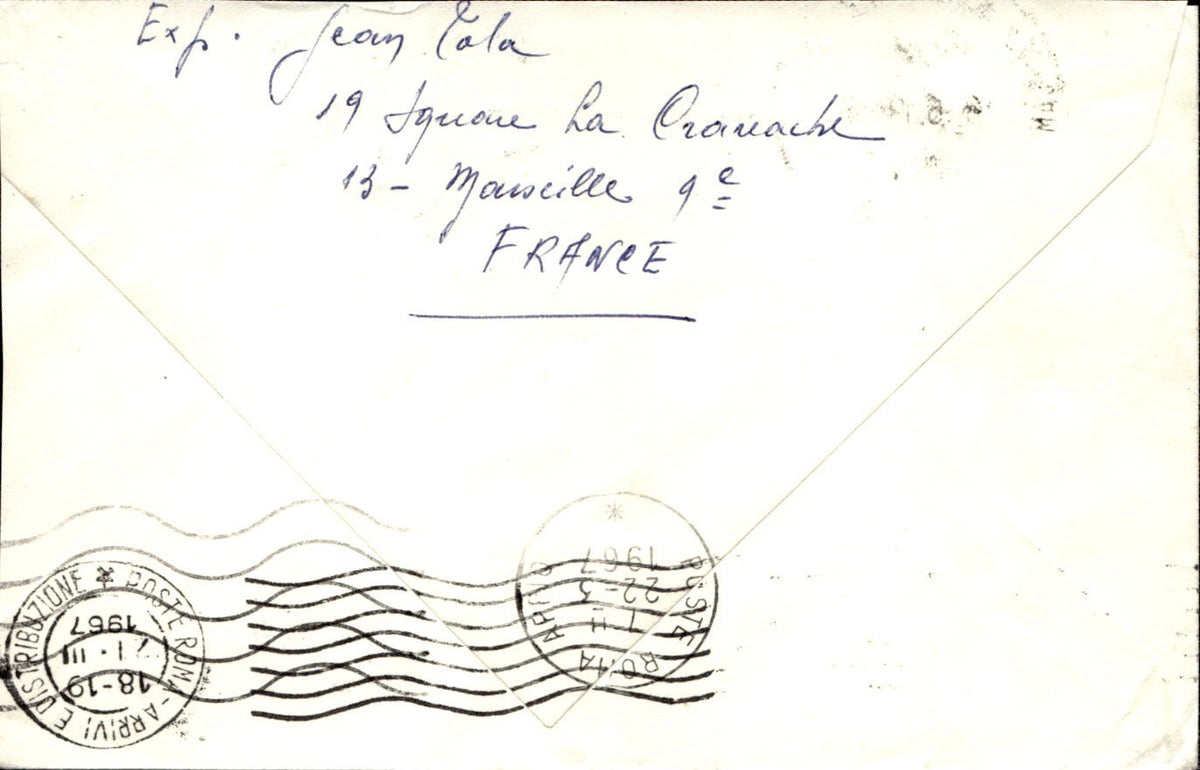 Exp. Jean Tola
19 Square La Cravache
13 - Marseille 9e
FRANCE
POSTE ROMA - ARRIVI E DISTRIBUZIONE
18-19
1967
POSTE ROMA
22-3
1967